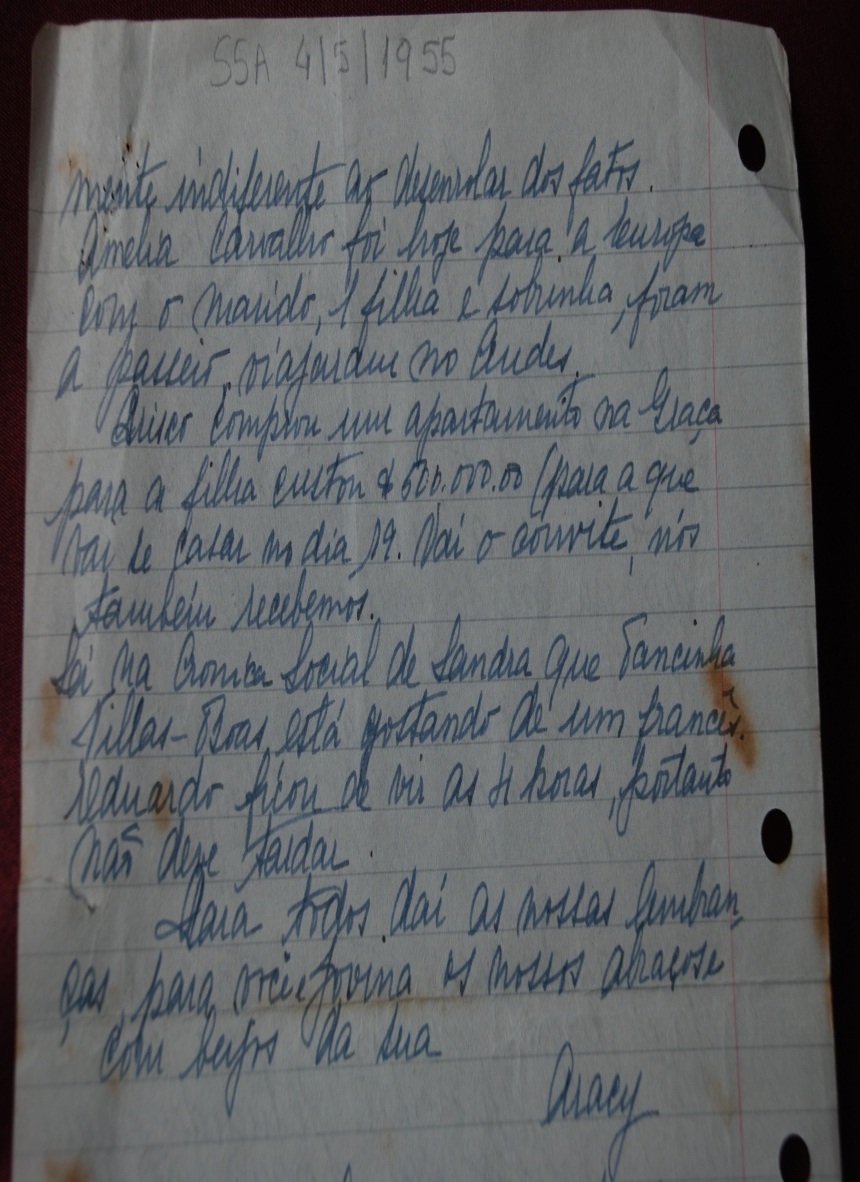 SSA 4/5/1955
mente indiferente ao desenrolar dos fatos.
Amelia Carvalho foi hoje para a Europa
com o marido, 1 filha e sobrinha, foram
a passeio, viajaram no Andes.
comprou um apartamento na Graça
para a filha custou $500.000.00 (para a que
vai se casar no dia 19. Vai o convite, nós
também recebemos.
na Cronica Social de Sandra que Tancinha
Villas-Boas está gostando de um francês.
Eduardo ficou de vir as 4 horas, portanto
não deve tardar.
Para todos daí as nossas lembran,
ças, para você e Jovina os nossos abraços e
com beijos da sua
Aracy